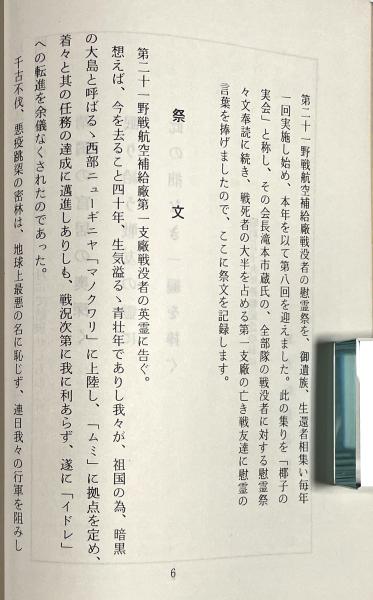 第二十一野戦航空補給廠戦没者の慰霊祭を、御遺族、生還者相集い毎年
一回実施し始め、本年を以て第八回を迎えました。此の集りを「椰子の
実会」と称し、その会長滝本市蔵氏の、全部隊の戦没者に対する慰霊祭
々文奉読に続き、戦死者の大半を占める第一支廠の亡き戦友達に慰霊の
言葉を捧げましたので、ここに祭文を記録します。
祭文
第二十一野戦航空補給廠第一支廠戦没者の英霊に告ぐ。
想えば、今を去ること四十年、生気溢るゝ青壮年でありし我々が、祖国の為、暗黒
の大島と呼ばるゝ西部ニューギニヤ「マノクワリ」に上陸し、「ムミ」に拠点を定め、
着々と其の任務の達成に邁進しありしも、戦況次第に我に利あらず、遂に「イドレ」
への転進を余儀なくされたのであった。
千古不伐、悪疫跳梁の密林は、地球上最悪の名に恥じず、連日我々の行軍を阻みし
6